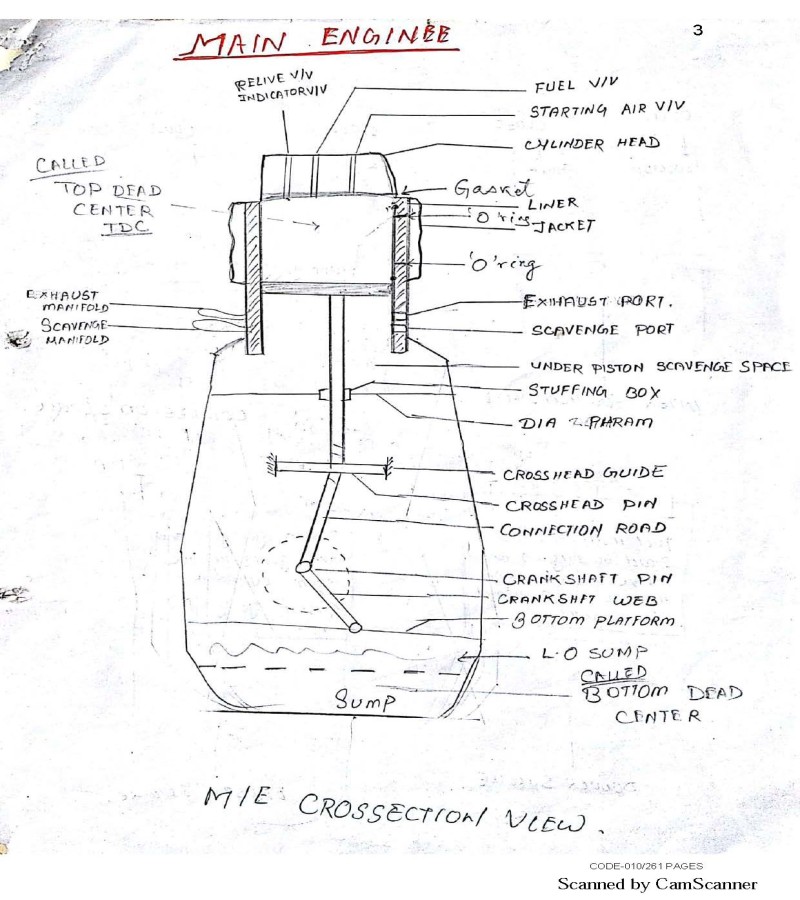 3
MAIN ENGINEE
RELIVE V/V
INDICATOR V/V
FUEL V/V
STARTING AIR V/V
CYLINDER HEAD
CALLED
TOP DEAD
CENTER
TDC
Gasket
LINER
'O'ring
JACKET
'O'ring
EXHAUST
MANIFOLD
SCAVENGE
MANIFOLD
EXHAUST PORT.
SCAVENGE PORT
UNDER PISTON SCAVENGE SPACE
STUFFING BOX
DIA PHRAM
CROSSHEAD GUIDE
CROSSHEAD PIN
CONNECTION ROAD
CRANKSHAFT PIN
CRANKSHFT WEB
BOTTOM PLATFORM
L.O SUMP
CALLED
BOTTOM DEAD
CENTER
SUMP
M/E CROSSECTION VIEW.
CODE-010/261 PAGES
Scanned by CamScanner